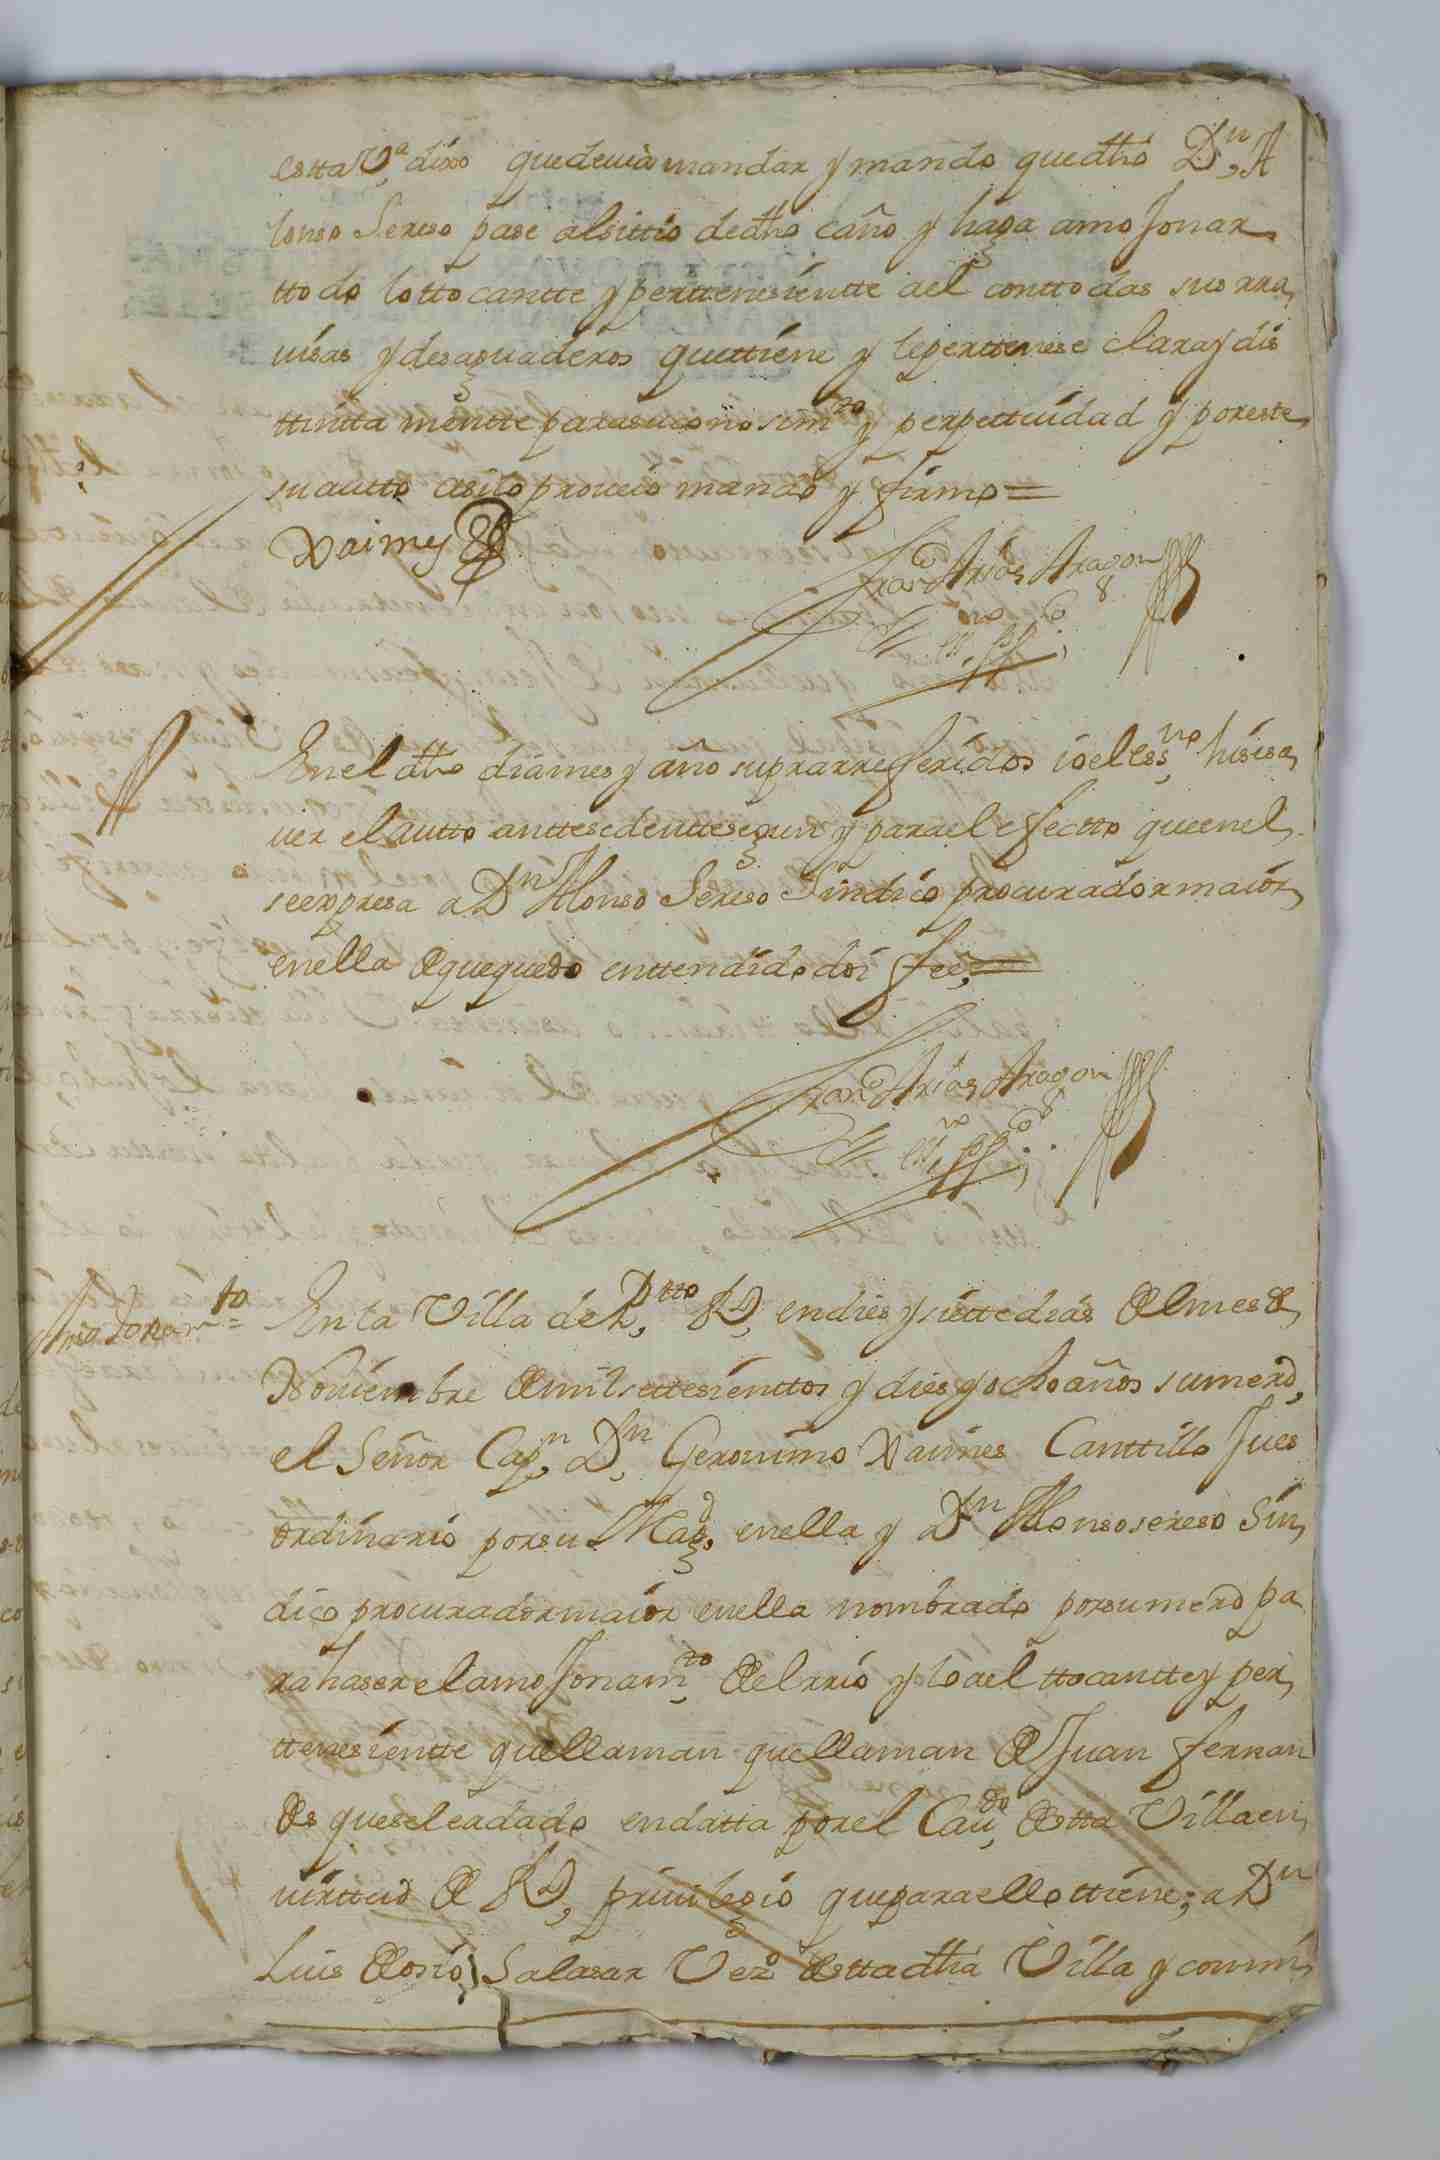 estta Va. dixo que deuia mandar y mando que dho Dn. A
lonso Sereso pase al sittio de dho caño y haga amojonar
ttodo lo ttocantte y perttenesientte ael con ttodas sus rra
uisas y desaguaderos que ttiene y le perttenese clara y dis
ttintta mentte para su conosimto y perpettuidad y por este
su autto asi lo proueio mando y firmo =
Xaimes
Franco Arias Aragon
esno ppco
En el dho dia mes y año suprarreferidos io el essno hisisa
uer el autto anttesedentte segun y para el efectto que en el
se expresa a Dn Alonso Sereso Sindico procurador maior
en ella de que quedo enttendido doi fee =
Franco Arias Aragon
esno ppco
Amojonamto =
En la Villa de Pto Rl en dies y siette dias del mes de
Nouiembre de mil settesienttos y dies y ocho años su merd
el Señor Capn. Dn. Geronimo Xaimes Canttillo Jues
ordinario por su Magd. en ella y Dn Alonso sereso Sin
dico procurador maior en ella nombrado por su merd pa
ra haser el amojonamto del rrio y lo ael ttocantte y per
ttenesientte que llaman que llaman de Juan fernan
des que se le a dado en datta por el Caudo destta Villa en
uirttud de Rl priuilegio que para ello ttiene; a Dn
Luis de osio Salasar Vezo destta dha Villa y comi